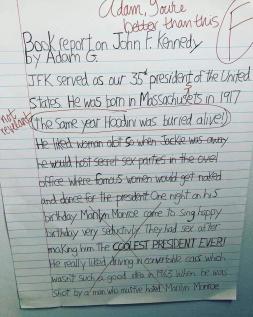 Adam, you're
better than this
F
Book report on John F. Kennedy
by Adam G.
JFK served as our 35th president of the United
States. He was born in Massachusets in 1917
not relevant
(the same year Hoodini was buried alive)
He liked woman alot so when Jackie was away
he would host secret sex parties in the ovel
office where famous women would get naked
and dance for the president. One night on his
birthday Marilyn Monroe came to sing happy
birthday very seductivly. They had sex after
making him The COOLEST PRESIDENT EVER!
He really liked driving in convertable cars which
wasn't such a good idea in 1963 when he was
shot by a man who must've hated Marilyn Monroe